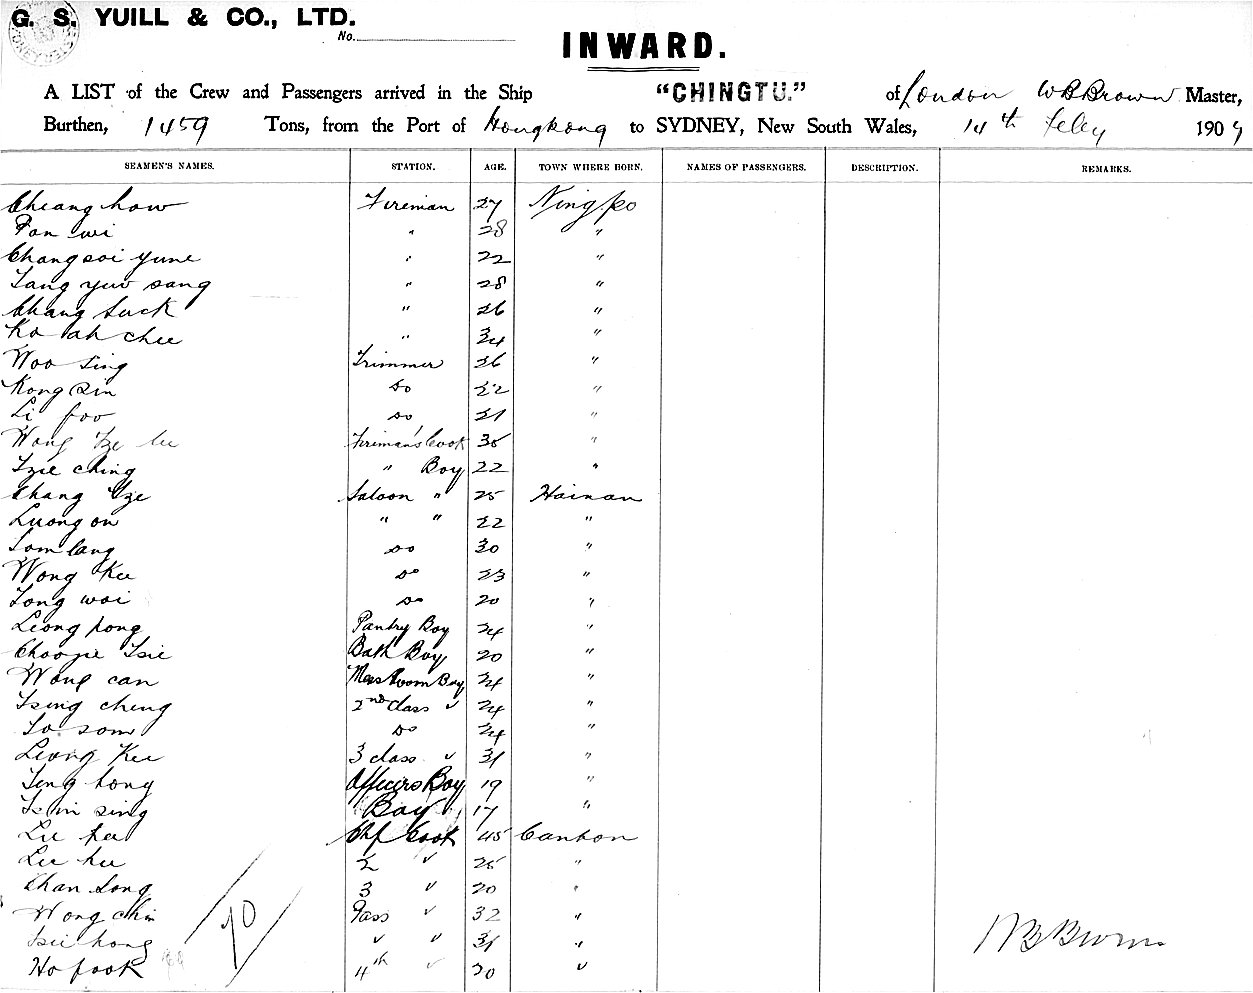 G. S. YUILL & CO., LTD.
No.
INWARD.
A LIST of the Crew and Passengers arrived in the Ship "CHINGTU." of London W B Brown Master,
Burthen, 1459 Tons, from the Port of Hongkong to SYDNEY, New South Wales, 14th Feby 1904
SEAMEN'S NAMES. STATION. AGE. TOWN WHERE BORN. NAMES OF PASSENGERS. DESCRIPTION. REMARKS.
Cheang how Fireman 27 Ningpo
Pan wi " 28 "
Chang soi yune " 22 "
Tang yuw sang " 28 "
Chang Suck " 26 "
Ko ah chee " 34 "
Woo Sing Trimmer 26 "
Kong Sin do 22 "
Li foo do 21 "
Wong Tze Fireman's Cook 35 "
Tzie ching " Boy 22 "
Chang Yze Saloon " 25 Hainan
Luong on " " 22 "
Som lang do 30 "
Wong Kee do 23 "
Tong woi do 20 "
Leong Pantry Boy 24 "
Tsie Bath Boy 20 "
Wong can Mess Room Boy 24 "
Tsing cheng 2nd Class " 24 "
To som do 24 "
Leong Kee 3 class " 31 "
Teng hong Officers Boy 19 "
Tsin sing Boy 17 "
Lee Chf Cook 45 Canton
Lee hee 2 " 25 "
Chan Song 3 " 20 "
Wong chin Pass " 32 "
Tsie hong " " 31 "
Ho fook 4th " 20 "
W B Brown